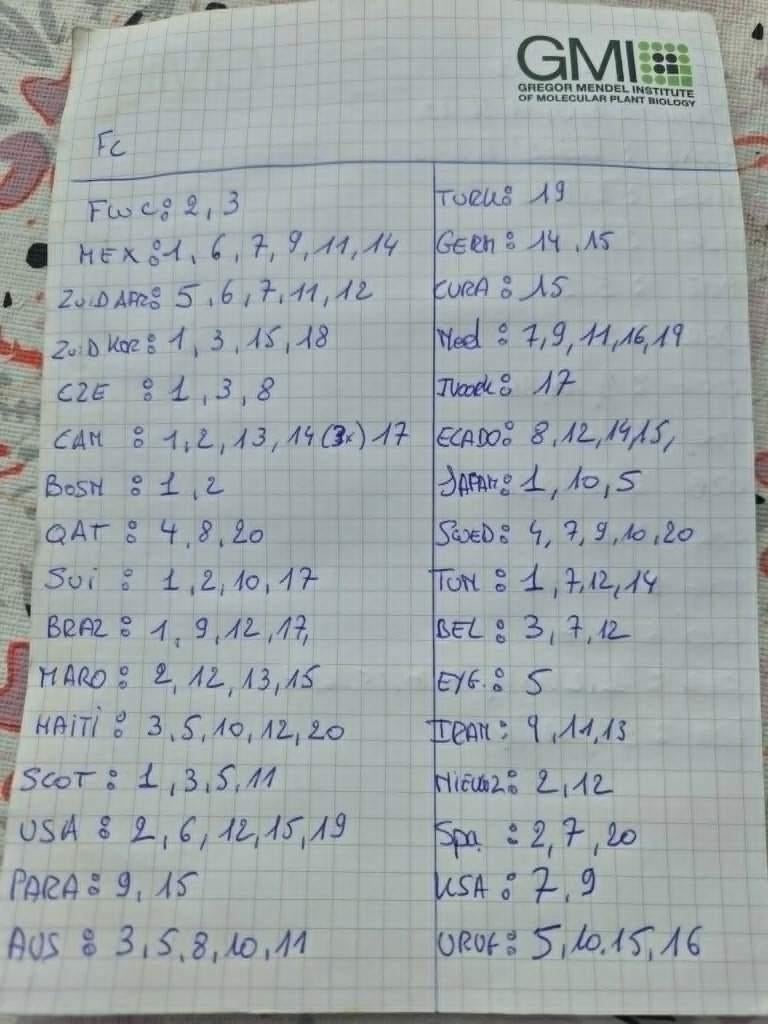 GMI
GREGOR MENDEL INSTITUTE
OF MOLECULAR PLANT BIOLOGY
FC
FWC: 2, 3
MEX: 1, 6, 7, 9, 11, 14
ZUID AFR: 5, 6, 7, 11, 12
ZUID KOR: 1, 3, 15, 18
CZE : 1, 3, 8
CAN : 1, 2, 13, 14 (3x) 17
BOSN : 1, 2
QAT : 4, 8, 20
SUI : 1, 2, 10, 17
BRAZ : 1, 9, 12, 17,
MARO : 2, 12, 13, 15
HAITI : 3, 5, 10, 12, 20
SCOT : 1, 3, 5, 11
USA : 2, 6, 12, 15, 19
PARA : 9, 15
AUS : 3, 5, 8, 10, 11
TURK: 19
GERM : 14, 15
CURA : 15
Ned : 7, 9, 11, 16, 19
: 17
ECADO: 8, 12, 14, 15,
JAPAN: 1, 10, 5
SWED: 4, 7, 9, 10, 20
TUN : 1, 7, 12, 14
BEL : 3, 7, 12
EYG. : 5
IRAN: 9, 11, 13
NIEUWZ: 2, 12
Spa. : 2, 7, 20
KSA : 7, 9
URUG: 5, 10. 15, 16